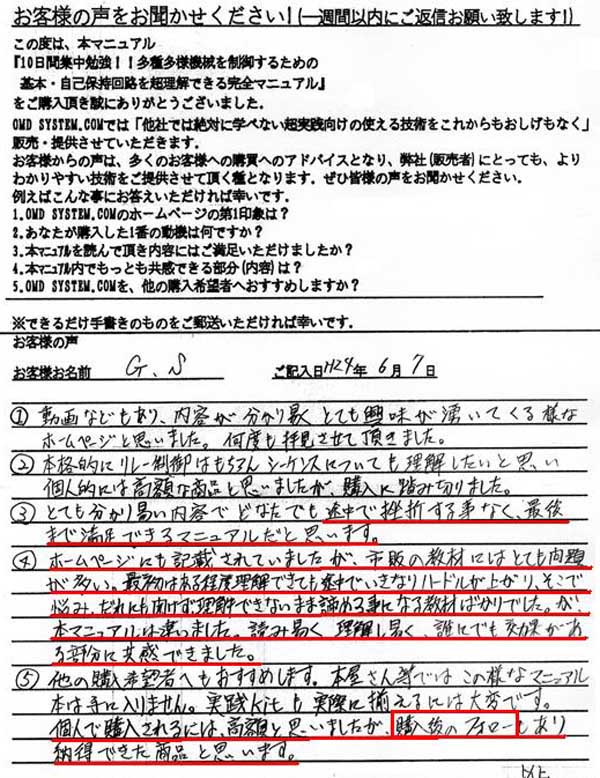 お客様の声をお聞かせください!(一週間以内にご返信お願い致します!)
この度は、本マニュアル
『10日間集中勉強!!多種多様機械を制御するための
基本・自己保持回路を超理解できる完全マニュアル』
をご購入頂き誠にありがとうございました.
OMD SYSTEM.COMでは「他社では絶対に学べない超実践向けの使える技術をこれからもおしげもなく」
販売・提供させていただきます.
お客様からの声は、多くのお客様への購買へのアドバイスとなり、弊社(販売者)にとっても、より
わかりやすい技術をご提供させて頂く種となります。ぜひ皆様の声をお聞かせください.
例えばこんな事にお答えいただければ幸いです.
1.OMD SYSTEM.COMのホームページの第1印象は?
2.あなたが購入した1番の動機は何ですか?
3.本マニュアルを読んで頂き内容にはご満足いただけましたか?
4.本マニュアル内でもっとも共感できる部分(内容)は?
5.OMD SYSTEM.COMを、他の購入希望者へおすすめしますか?
※できるだけ手書きのものをご郵送いただければ幸いです.
お客様の声
お客様お名前 G.S ご記入日 H24年 6月 7日
① 動画などもあり、内容が分かり易く とても興味が湧いてくる様な
ホームページと思いました。何度も拝見させて頂きました。
② 本格的にリレー制御はもちろん シーケンスについても理解したいと思い
個人的には高額な商品と思いましたが、購入に踏み切りました。
③ とても分かり易い内容で どなたでも途中で挫折する事なく、最後
まで満足できるマニュアルだと思います。
④ ホームページにも記載されていましたが、市販の教材にはとても問題
が多い。最初はある程度理解できても途中でいきなりハードルが上がり、そこで
悩み、だれにも聞けず理解できないまま諦める事になる教材ばかりでした。が、
本マニュアルは違いました。読み易く 理解し易く、誰にでも効果があ
る部分に共感できました。
⑤ 他の購入希望者へもおすすめします。本屋さん等ではこの様なマニュアル
本は手に入りません。実践Kitも実際に揃えるには大変です。
個人で購入されるには、高額と思いましたが、購入後のフォローもあり
納得できた商品と思います。
以上